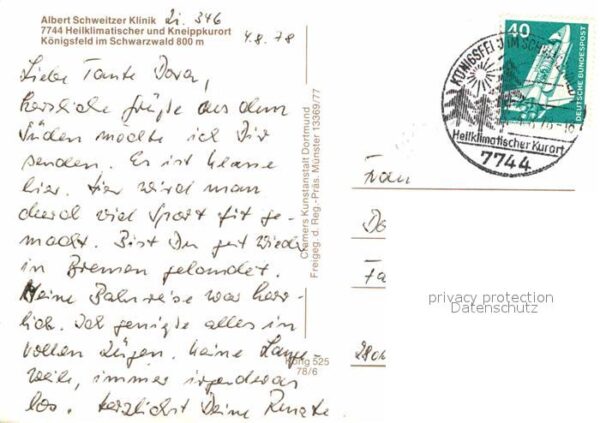 Albert Schweitzer Klinik Zi. 346
7744 Heilklimatischer und Kneippkurort
Königsfeld im Schwarzwald 800 m
4.8.78
Liebe Tante Dora,
herzliche Grüße aus dem
Süden möchte ich Dir
senden. Es ist klasse
hier. Hier wird man
durch viel Sport fit ge-
macht. Bist Du gut wieder
in Bremen gelandet.
Meine Bahnreise war herr-
lich. Ich genieße alles in
vollen Zügen. Keine Lange-
weile, immer irgendwas
los. Herzlichst Deine Renate
Cramers Kunstanstalt Dortmund
Freigeg. d. Reg.-Präs. Münster 13369/77
Köng 525
78/6
40
DEUTSCHE BUNDESPOST
KÖNIGSFELD IM SCHW
Heilklimatischer Kurort
7744
Frau
Do
Fa
privacy protection
Datenschutz
28